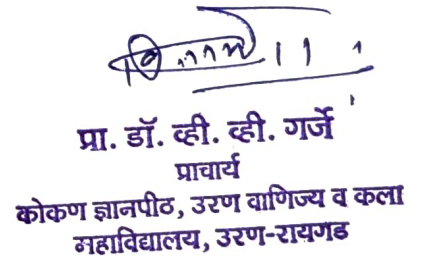 प्रा. डॉ. व्ही. व्ही. गर्जे
प्राचार्य
कोकण ज्ञानपीठ, उरण वाणिज्य व कला
महाविद्यालय, उरण-रायगड